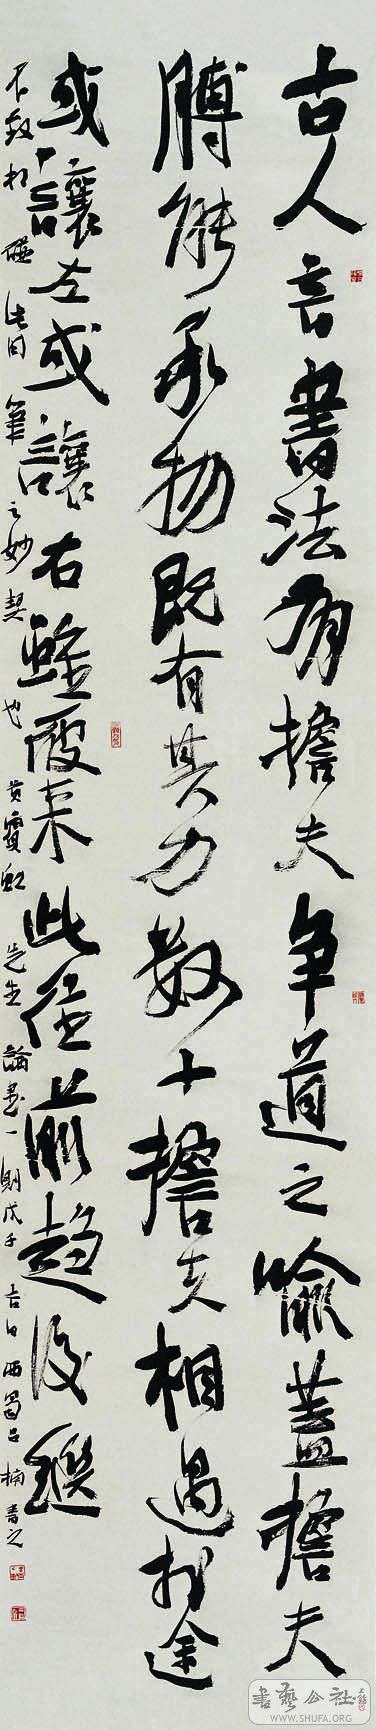 古人言書法有擔夫争道之喻蓋擔夫
膊能承物既有其力數十擔夫相遇於途
或讓左或讓右雖彼来此往前趨後繼
不致相碰此用筆之妙契也黄賓虹先生論書一則戊子吉日西蜀吕楠書之
書藝公社
WWW.SHUFA.ORG